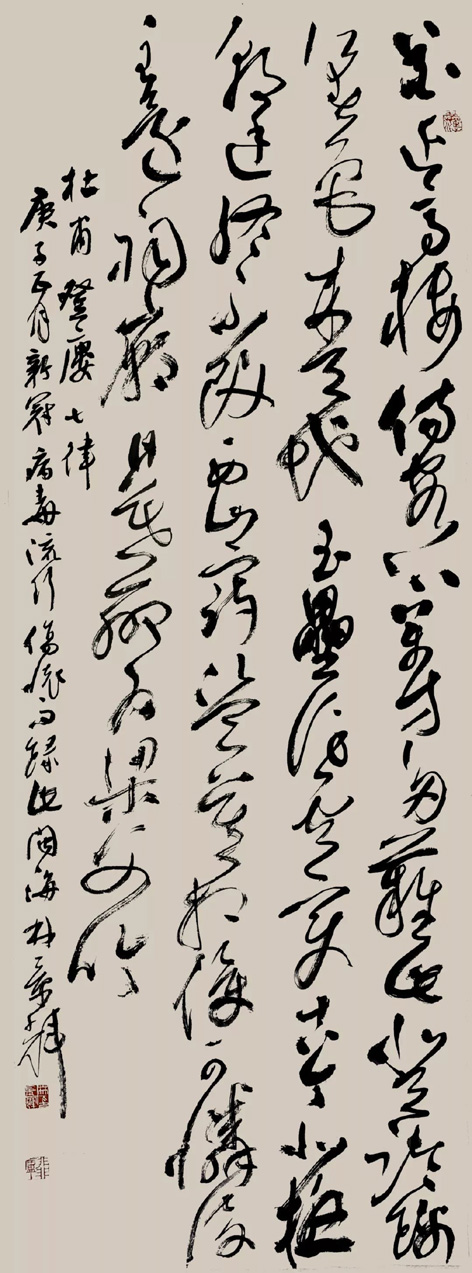 花近高樓傷客心萬方多難此登臨錦
江春色來天地玉壘浮雲變古今北極
朝廷終不改西山寇盜莫相侵可憐後
主還祠廟日暮聊為梁父吟
杜甫登樓七律
庚子正月新冠病毒流行傷懷而錄此閩海林